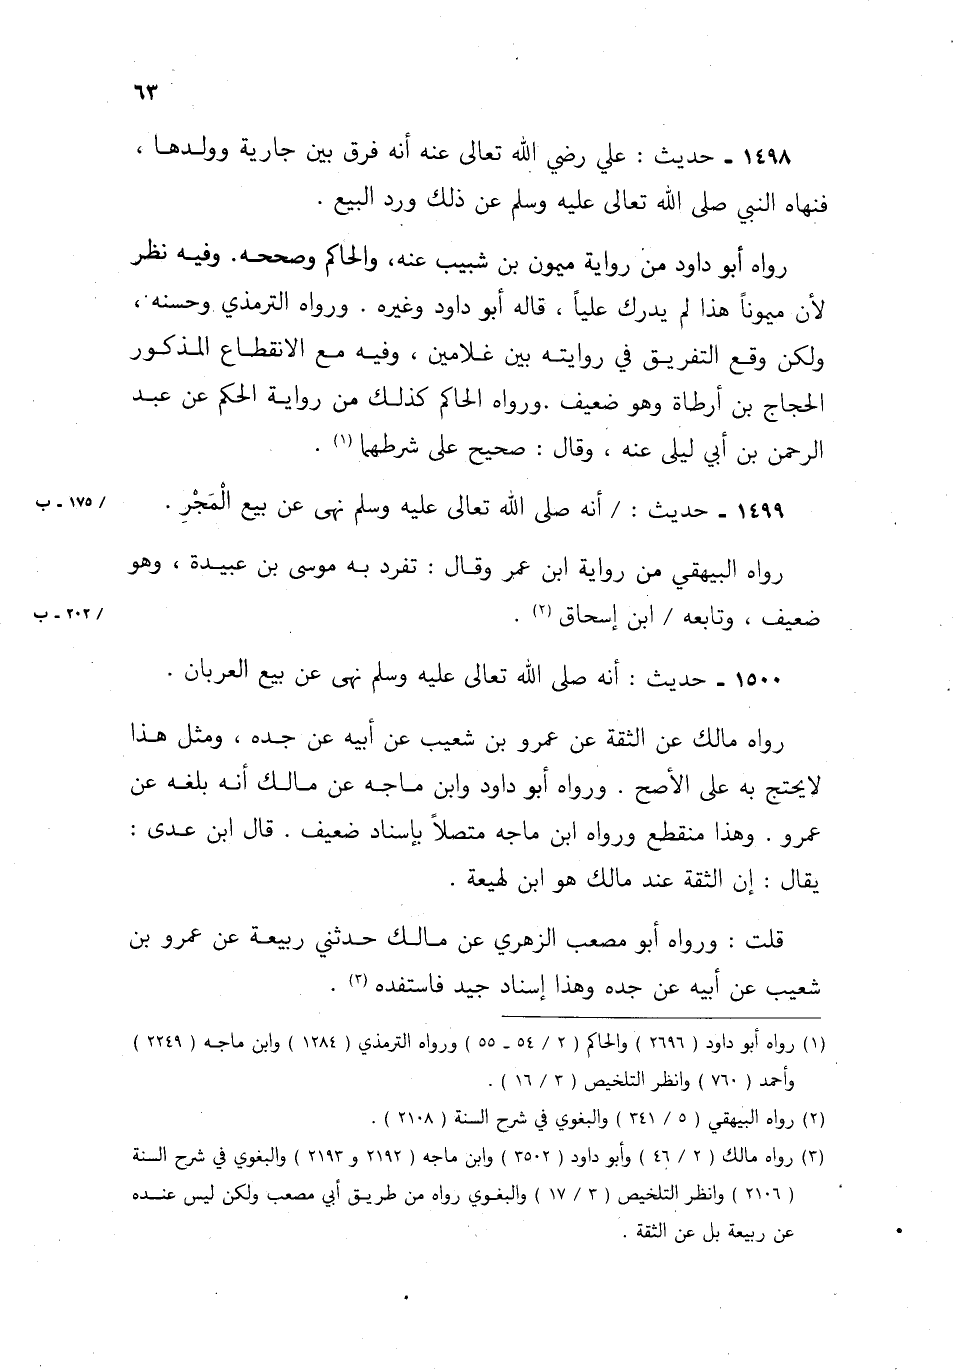 ٦٣
١٤٩٨ ـ حديث : علي رضي الله تعالى عنه أنه فرق بين جارية وولدها ،
فنهاه النبي صلى الله تعالى عليه وسلم عن ذلك ورد البيع .
رواه أبو داود من رواية ميمون بن شبيب عنه، والحاكم وصححه. وفيه نظر
لأن ميموناً هذا لم يدرك علياً ، قاله أبو داود وغيره . ورواه الترمذي وحسنه ،
ولكن وقع التفريق في روايته بين غلامين ، وفيه مع الانقطاع المذكور
الحجاج بن أرطاة وهو ضعيف .ورواه الحاكم كذلك من رواية الحكم عن عبد
الرحمن بن أبي ليلى عنه ، وقال : صحيح على شرطهما (١) .
١٤٩٩ ـ حديث : / أنه صلى الله تعالى عليه وسلم نهى عن بيع الْمَجْرِ .
/ ١٧٥ ـ ب
رواه البيهقي من رواية ابن عمر وقال : تفرد به موسى بن عبيدة ، وهو
ضعيف ، وتابعه / ابن إسحاق (٢) .
/ ٢٠٢ ـ ب
١٥٠٠ ـ حديث : أنه صلى الله تعالى عليه وسلم نهى عن بيع العربان .
رواه مالك عن الثقة عن عمرو بن شعيب عن أبيه عن جده ، ومثل هذا
لايحتج به على الأصح . ورواه أبو داود وابن ماجه عن مالك أنه بلغه عن
عمرو . وهذا منقطع ورواه ابن ماجه متصلاً بإسناد ضعيف . قال ابن عدى :
يقال : إن الثقة عند مالك هو ابن لهيعة .
قلت : ورواه أبو مصعب الزهري عن مالك حدثني ربيعة عن عمرو بن
شعيب عن أبيه عن جده وهذا إسناد جيد فاستفده (٣) .
(١) رواه أبو داود ( ٢٦٩٦ ) والحاكم ( ٢ / ٥٤ ـ ٥٥ ) ورواه الترمذي ( ١٢٨٤ ) وابن ماجه ( ٢٢٤٩ )
وأحمد ( ٧٦٠ ) وانظر التلخيص ( ٣ / ١٦ ) .
(٢) رواه البيهقي ( ٥ / ٣٤١ ) والبغوي في شرح السنة ( ٢١٠٨ ) .
(٣) رواه مالك ( ٢ / ٤٦ ) وأبو داود ( ٣٥٠٢ ) وابن ماجه ( ٢١٩٢ و ٢١٩٣ ) والبغوي في شرح السنة
( ٢١٠٦ ) وانظر التلخيص ( ٣ / ١٧ ) والبغوي رواه من طريق أبي مصعب ولكن ليس عنده
عن ربيعة بل عن الثقة .